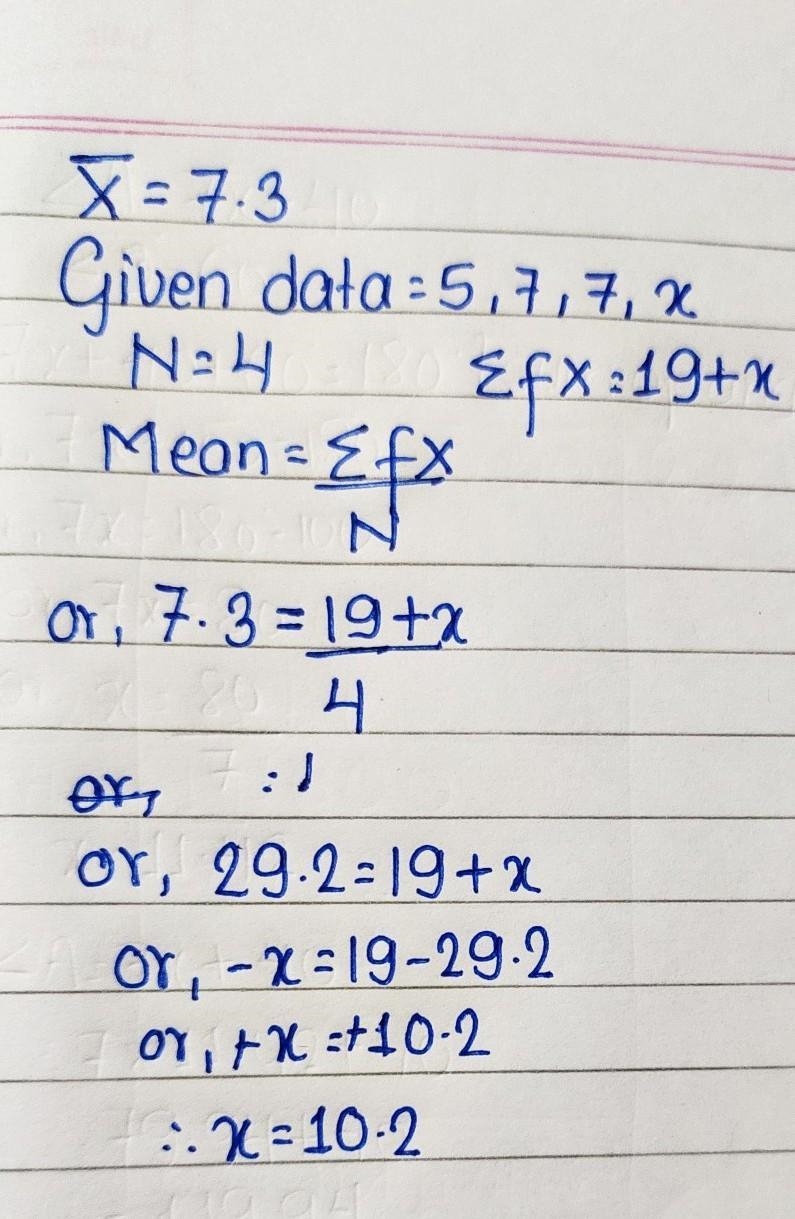 X̄ = 7.3
Given data = 5, 7, 7, x
N = 4 Σfx = 19+x
Mean = Σfx
N
or, 7.3 = 19+x
4
or,
or, 29.2 = 19+x
or, -x = 19-29.2
or, +x = +10.2
∴ x = 10.2